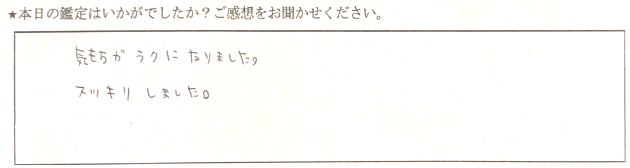 ★本日の鑑定はいかがでしたか？ご感想をお聞かせください。
気もちが ラクに なりました。
スッキリ しました。